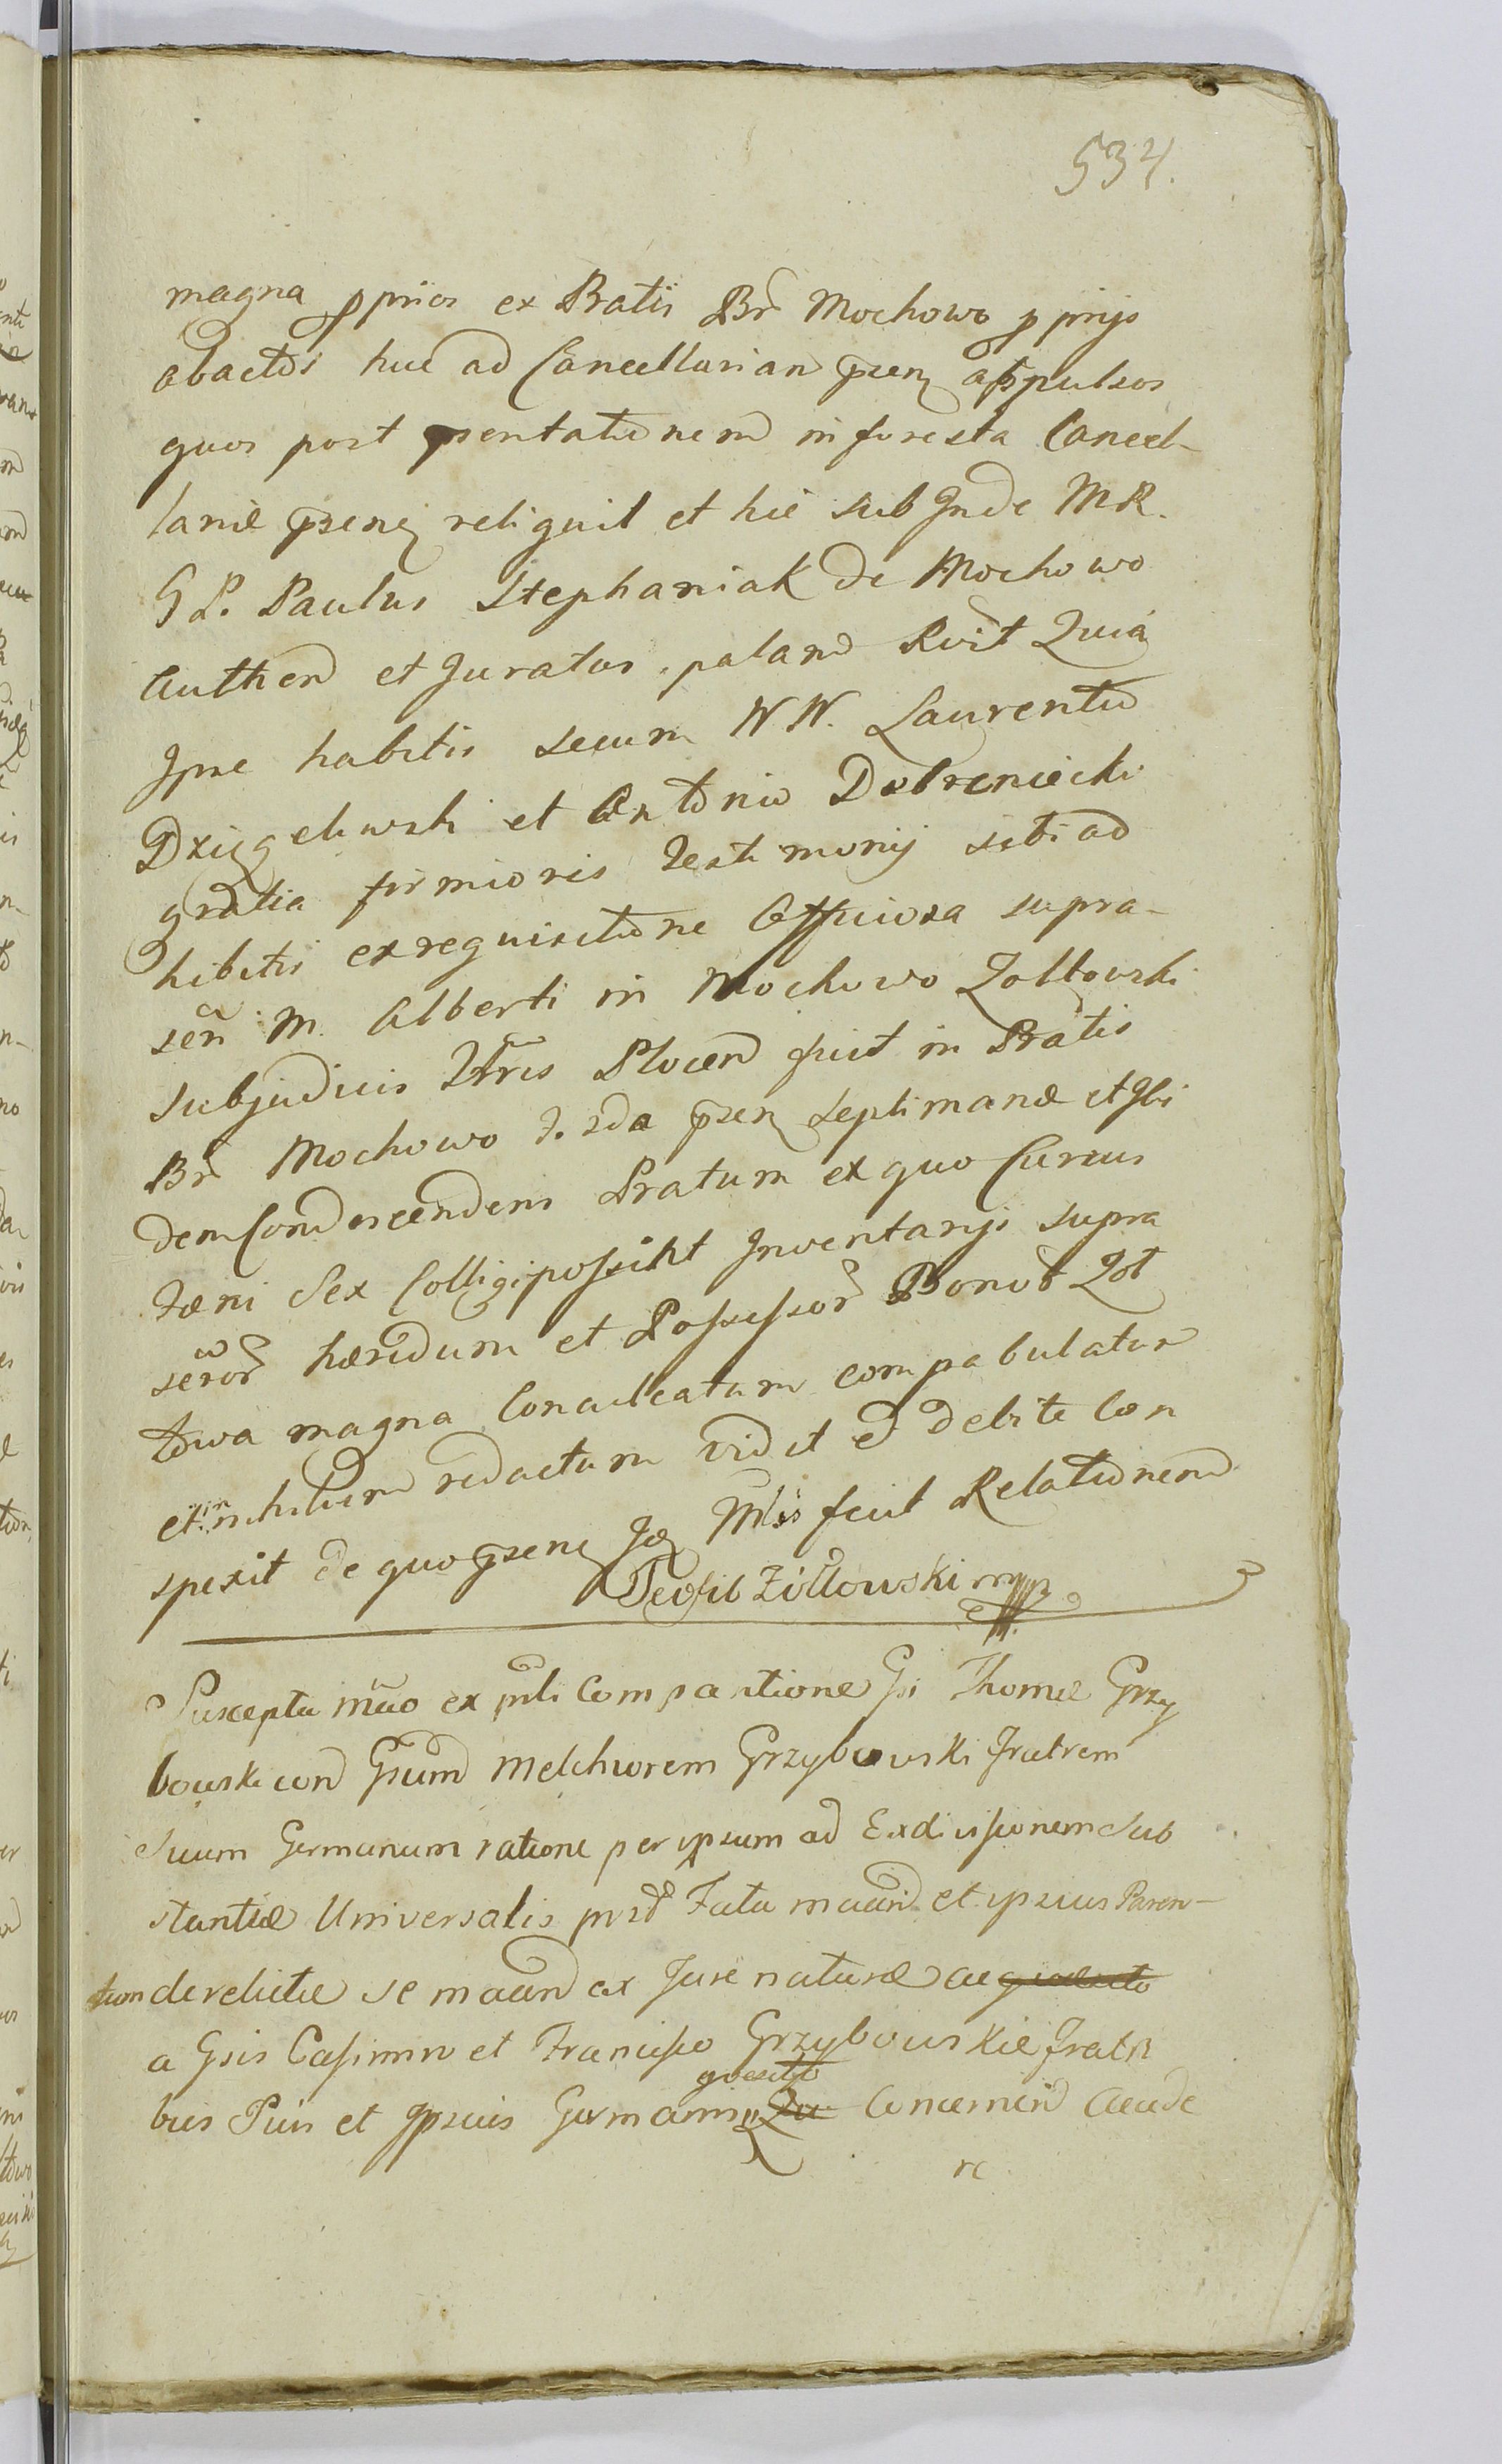 534.
magna pprios ex Pratis Br Mochowo pprijs
abactos huc ad Cancellariam psen appulsos
quos post psentationem in foresta Cancel-
lariæ psenq reliquit et hic sub Inde MR.
G P. Paulus Stephaniak de Mochowo
Authen et Juratus, palam Rvit Quia
Ipse habitis secum NN. Laurentio
Dzięgelewski et Antonio Dobreniecki
gratia firmioris Testimonij sibi ad
hibitis ex requisitione Officiosa supra-
sen M. Alberti in Mochowo Zołtowski
Subjudicis Ttris Plocen fuit in Pratis
Br Mochowo f. 2da psen septimanæ et Ibi
dem Condescendens Pratum ex quo Currus
Fæni Sex Colligi possint Inventarijs supra
seror hæredum et Possessor Bonor Zoł
towa magna Conculcatum compabulatum
et in nihilum redactum vidit et debite Con
spexit de quo psenq Jd Mlis fecit Relationem
Teofil Zółtowski mpp
Suscepta mño ex pnli Comparitione Gsi Thomæ Grzy
bowski con Gsum Melchiorem Grzybowski Fratrem
Suum Germanum ratione per ipsum ad Exdivisionem Sub
stantiæ Universalis post Fata maan et ipsius Paren-
tum derelictæ se maan ex Jure naturæ ac quæsito
a Gsis Casimiro et Francisco Grzybowskie Fratri
quæsito
bus Suis et Ipsius Germanis Qu Concernen Accede
re